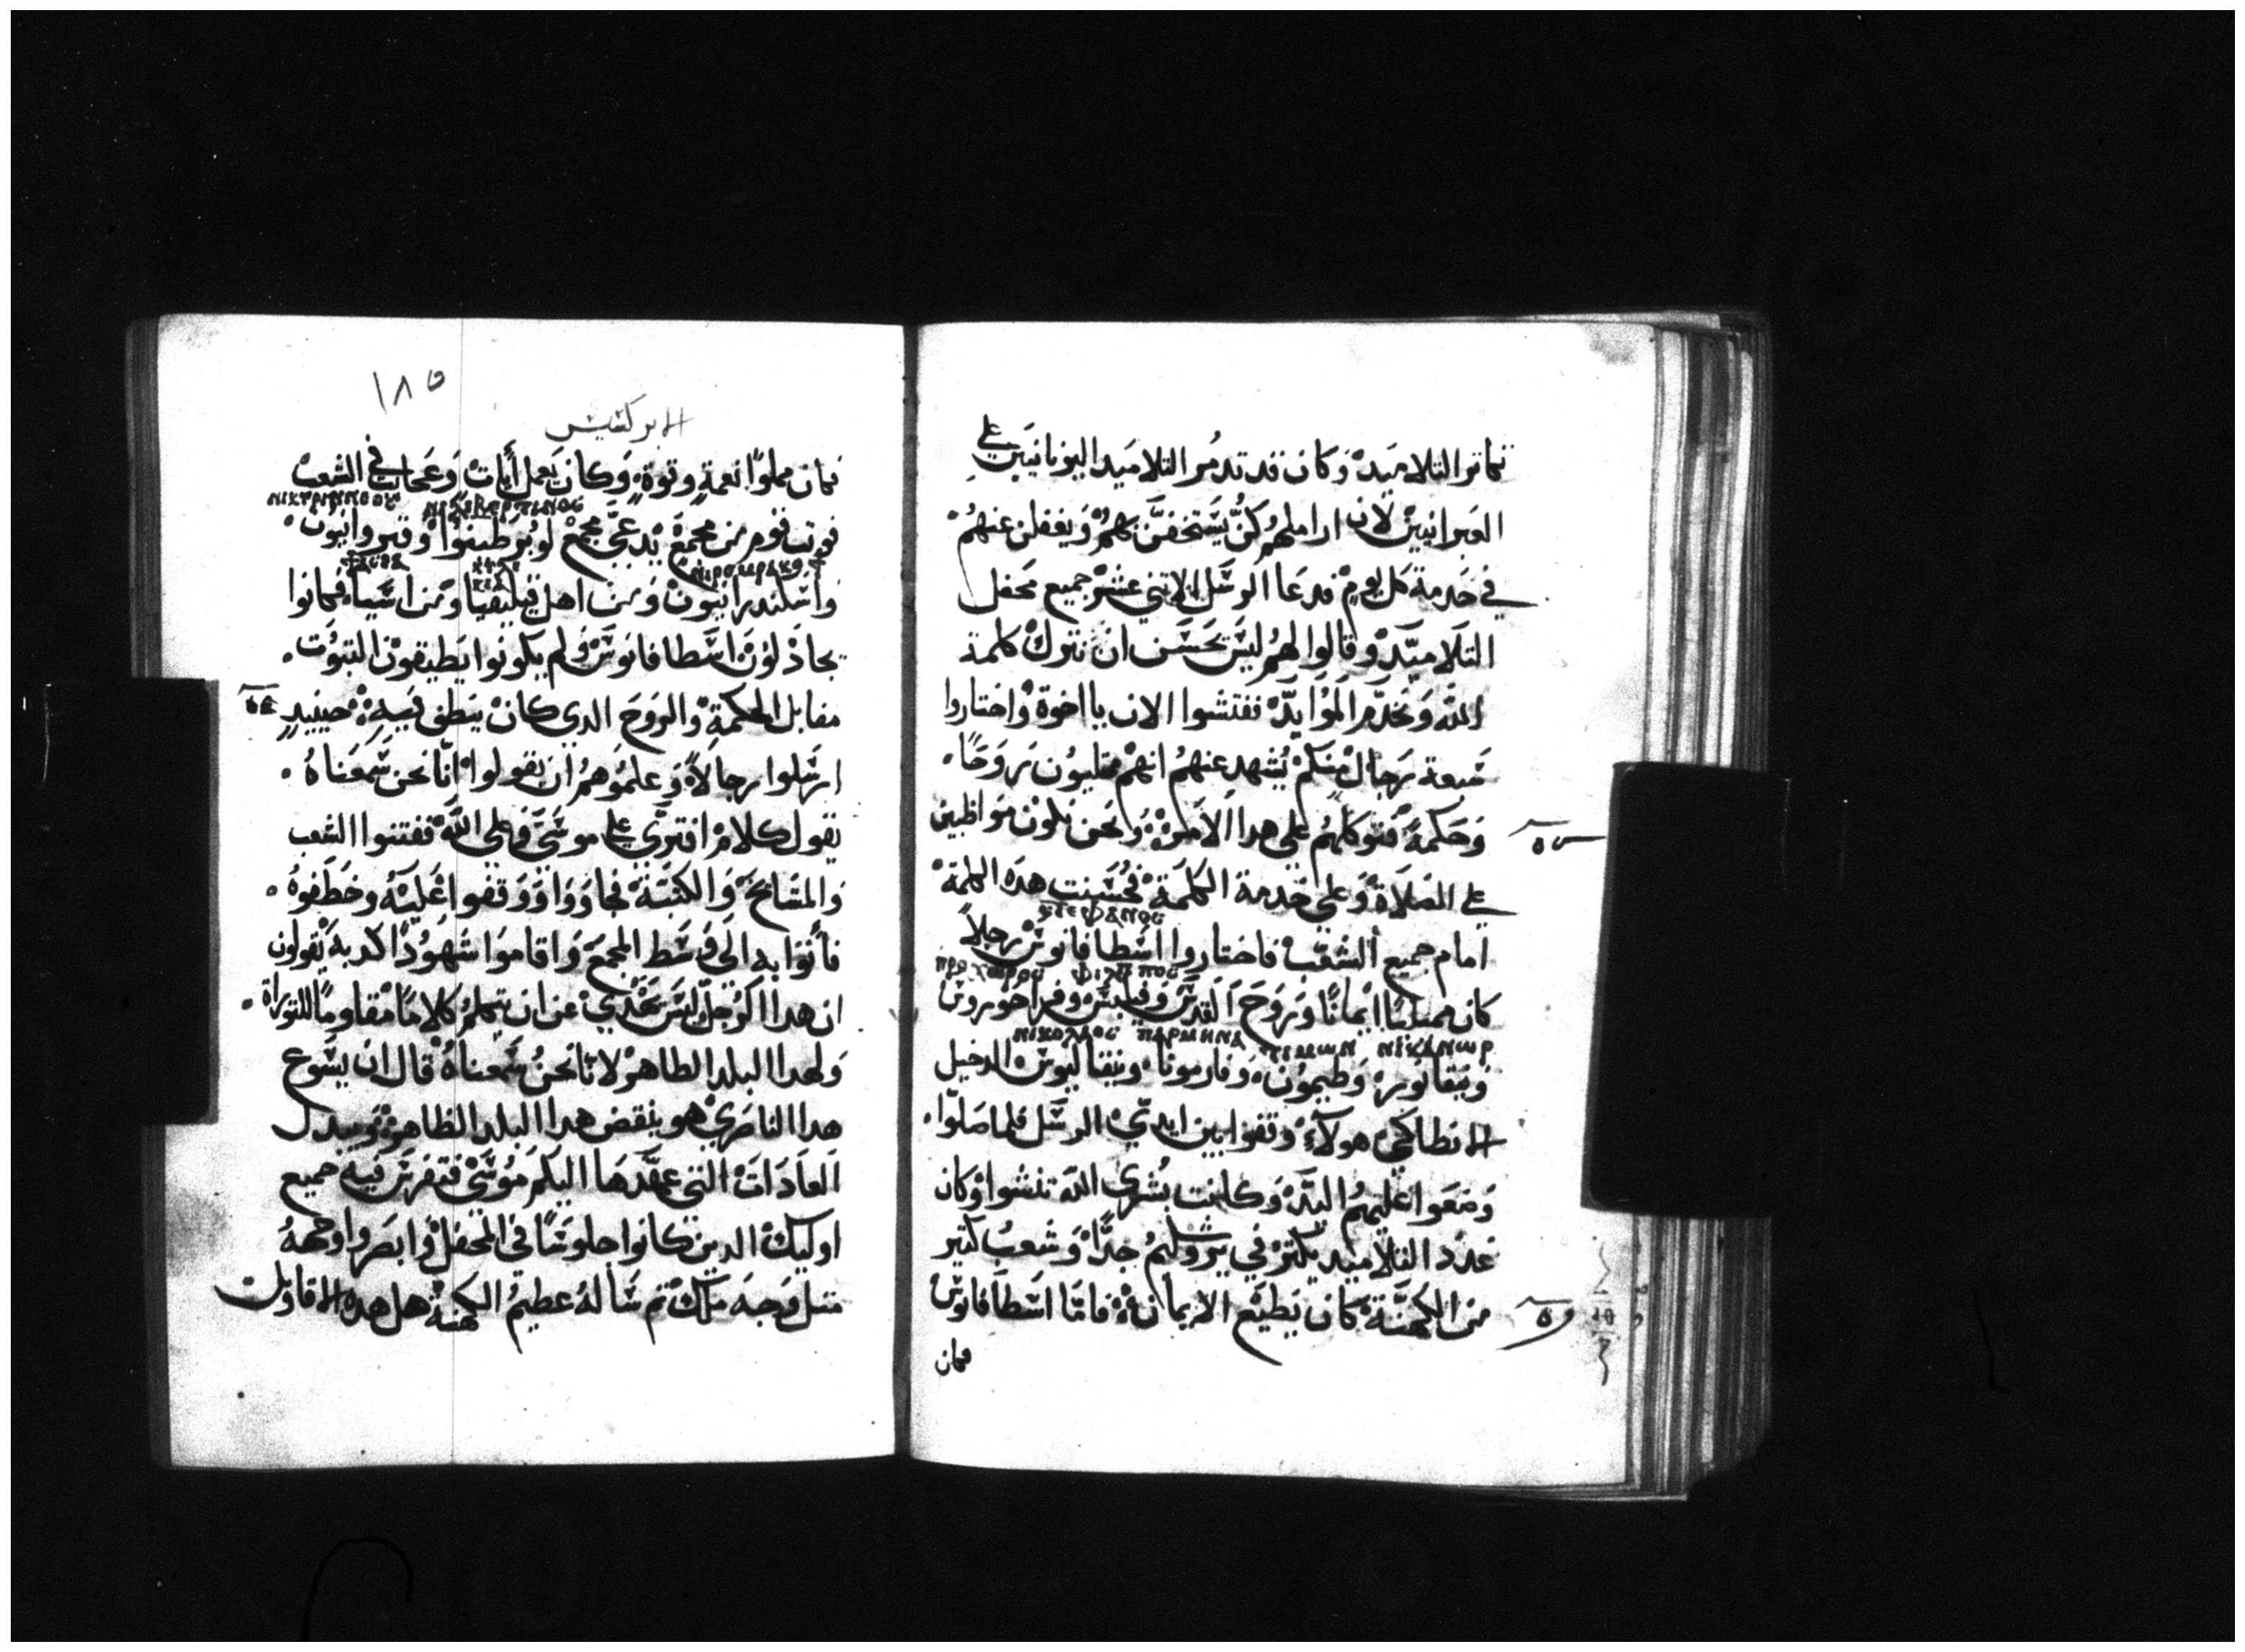 تكاتروا التلاميد وكان قد تدمر التلاميد اليونانيين علي
العبرانيين لان اراملهم كن يستخفن بهم ويغفلن عنهم
في خدمة كل يوم فدعا الرسل الاتني عشر جميع محفل
التلاميد وقالوا لهم ليس يحسن ان نترك كلمة
الله ونخدم الموايد ففتشوا الان يا اخوة واختاروا
سبعة رجال منكم يشهد عنهم انهم مملوون روحا
وحكمة فنوكلهم على هدا الامر ونحن نكون مواظبين
علي الصلاة وعلى خدمة الكلمة فحسنت هده الكلمة
ⲥⲧⲉⲫⲁⲛⲟⲥ
امام جميع الشعب فاختاروا اسطافانوس رجلا
ⲡⲣⲟⲭⲱⲣⲟⲥ ⲫⲓⲗⲓⲡⲡⲟⲥ
كان ممتليا ايمانا وروح القدس وفيلبس وفراخوروس
ⲛⲓⲕⲟⲗⲁⲟⲥ ⲡⲁⲣⲙⲉⲛⲁ ⲧⲓⲙⲱⲛ ⲛⲓⲕⲁⲛⲱⲣ
ونيقانور وطيمون وفارمونا ونيقاليوس الدخيل
الانطاكي هولاء وقفوا بين ايدي الرسل فلما صلوا
وضعوا عليهم اليد وكانت بشري الله تنشوا وكان
عدد التلاميد يكتر في يروشليم جدا وشعب كتير
من الكهنة كان يطيع الايمان فاما اسطافانوس
فكان
١٨٥
الابركسيس
فكان مملوا نعمة وقوة وكان يعمل ايات وعجايب في الشعب
فوتب قوم من مجمع يدعي مجمع لوبرطينوا وقيروانيون
واسكندرانيون ومن اهل قيليقيا ومن اسيا فكانوا
يجادلون اسطافانوس ولم يكونوا يطيقون التبوت
مقابل الحكمة والروح الدي كان ينطق فيه حينيد
ارسلوا رجالا وعلموهم ان يقولوا انا نحن سمعناه
يقول كلام افتري علي موسي وعلى الله ففتنوا الشعب
والمشايخ والكتبة فجاووا ووقفوا عليه وخطفوه
فاتوا به الي وسط المجمع واقاموا شهودا كدبة يقولون
ان هدا الرجل ليس يهدي عن ان يتكلم كلاما مقاوما للتوراة
ولهدا البلد الطاهر لانا نحن سمعناه قال ان يسوع
هدا الناصري هو ينقض هدا البلد الطاهر ويبدل
العادات التي عهدها اليكم موسي فتفرس فيه جميع
اوليك الدين كانوا جلوسا في المحفل وابصروا وجهه
متل وجه ملاك تم ساله عظيم الكهنة هل هده الاقاويل